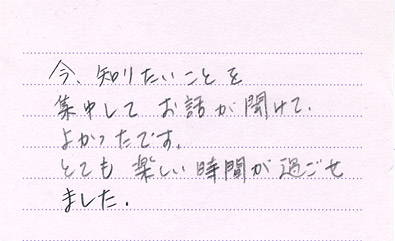 今、知りたいことを
集中して お話が聞けて、
よかったです。
とても 楽しい時間が過ごせ
ました.